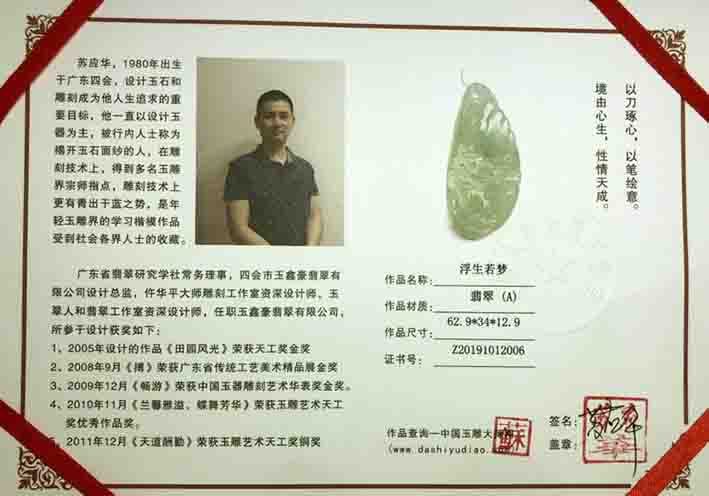 苏应华，1980年出生
于广东四会，设计玉石和
雕刻成为他人生追求的重
要目标，他一直以设计玉
器为主，被行内人士称为
揭开玉石面纱的人，在雕
刻技术上，得到多名玉雕
界宗师指点，雕刻技术上
更有青出于蓝之势，是年
轻玉雕界的学习楷模作品
受到社会各界人士的收藏。
广东省翡翠研究学社常务理事，四会市玉鑫豪翡翠有
限公司设计总监，仵华平大师雕刻工作室资深设计师、玉
翠人和翡翠工作室资深设计师，任职玉鑫豪翡翠有限公司，
所参于设计获奖如下：
1、2005年设计的作品《田园风光》荣获天工奖金奖
2、2008年9月《搏》荣获广东省传统工艺美术精品展金奖
3、2009年12月《畅游》荣获中国玉器雕刻艺术华表奖金奖。
4、2010年11月《兰馨雅溢、蝶舞芳华》荣获玉雕艺术天工
奖优秀作品奖。
5、2011年12月《天道酬勤》荣获玉雕艺术天工奖铜奖
以刀琢心，以笔绘意。
境由心生，性情天成。
作品名称： 浮生若梦
作品材质： 翡翠 (A)
作品尺寸： 62.9*34*12.9
证书号： Z20191012006
作品查询一中国玉雕大师网
(www.dashiyudiao.com)
蘇
签名：
盖章：